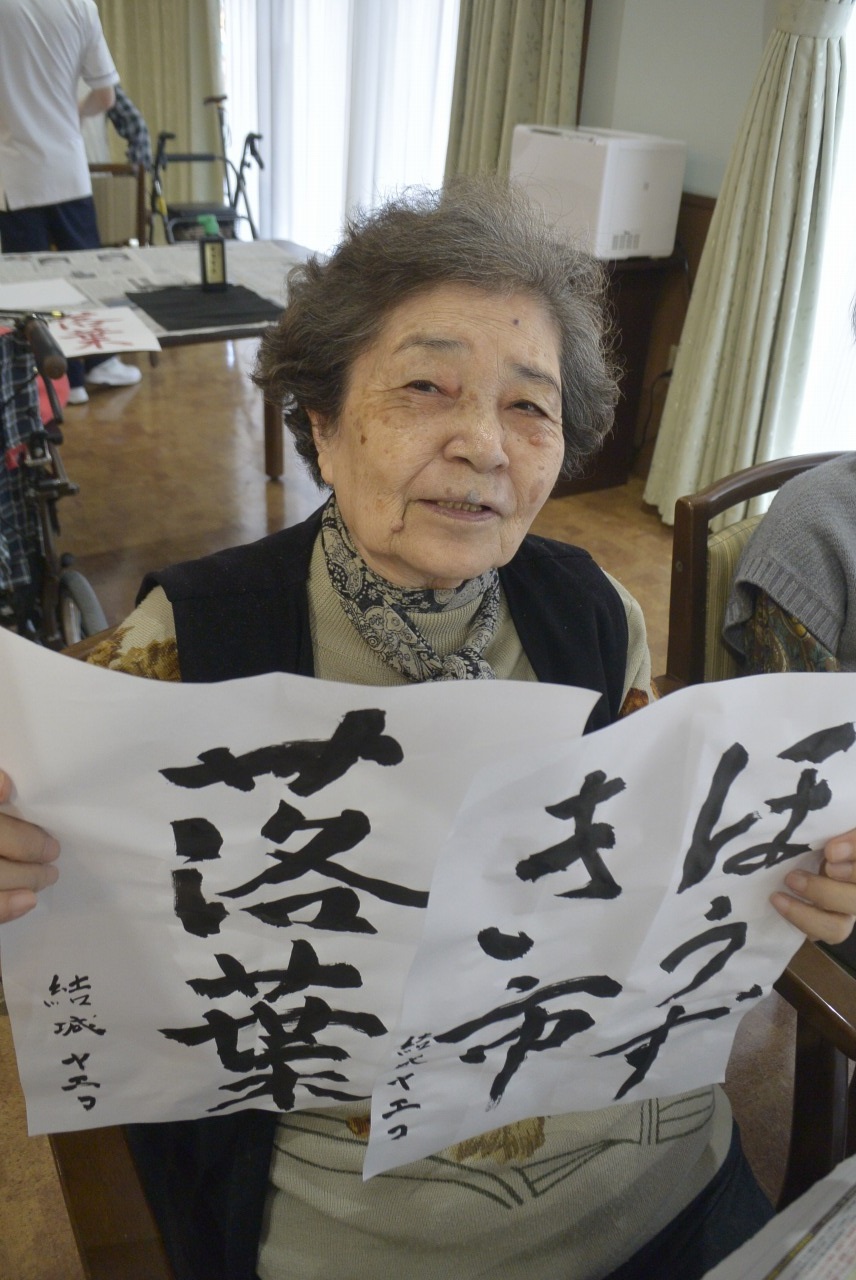 ほうず
き市
結城ヤエコ
落葉
結城ヤエコ